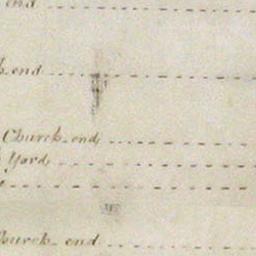 end
end
Church end
Yard
Church end